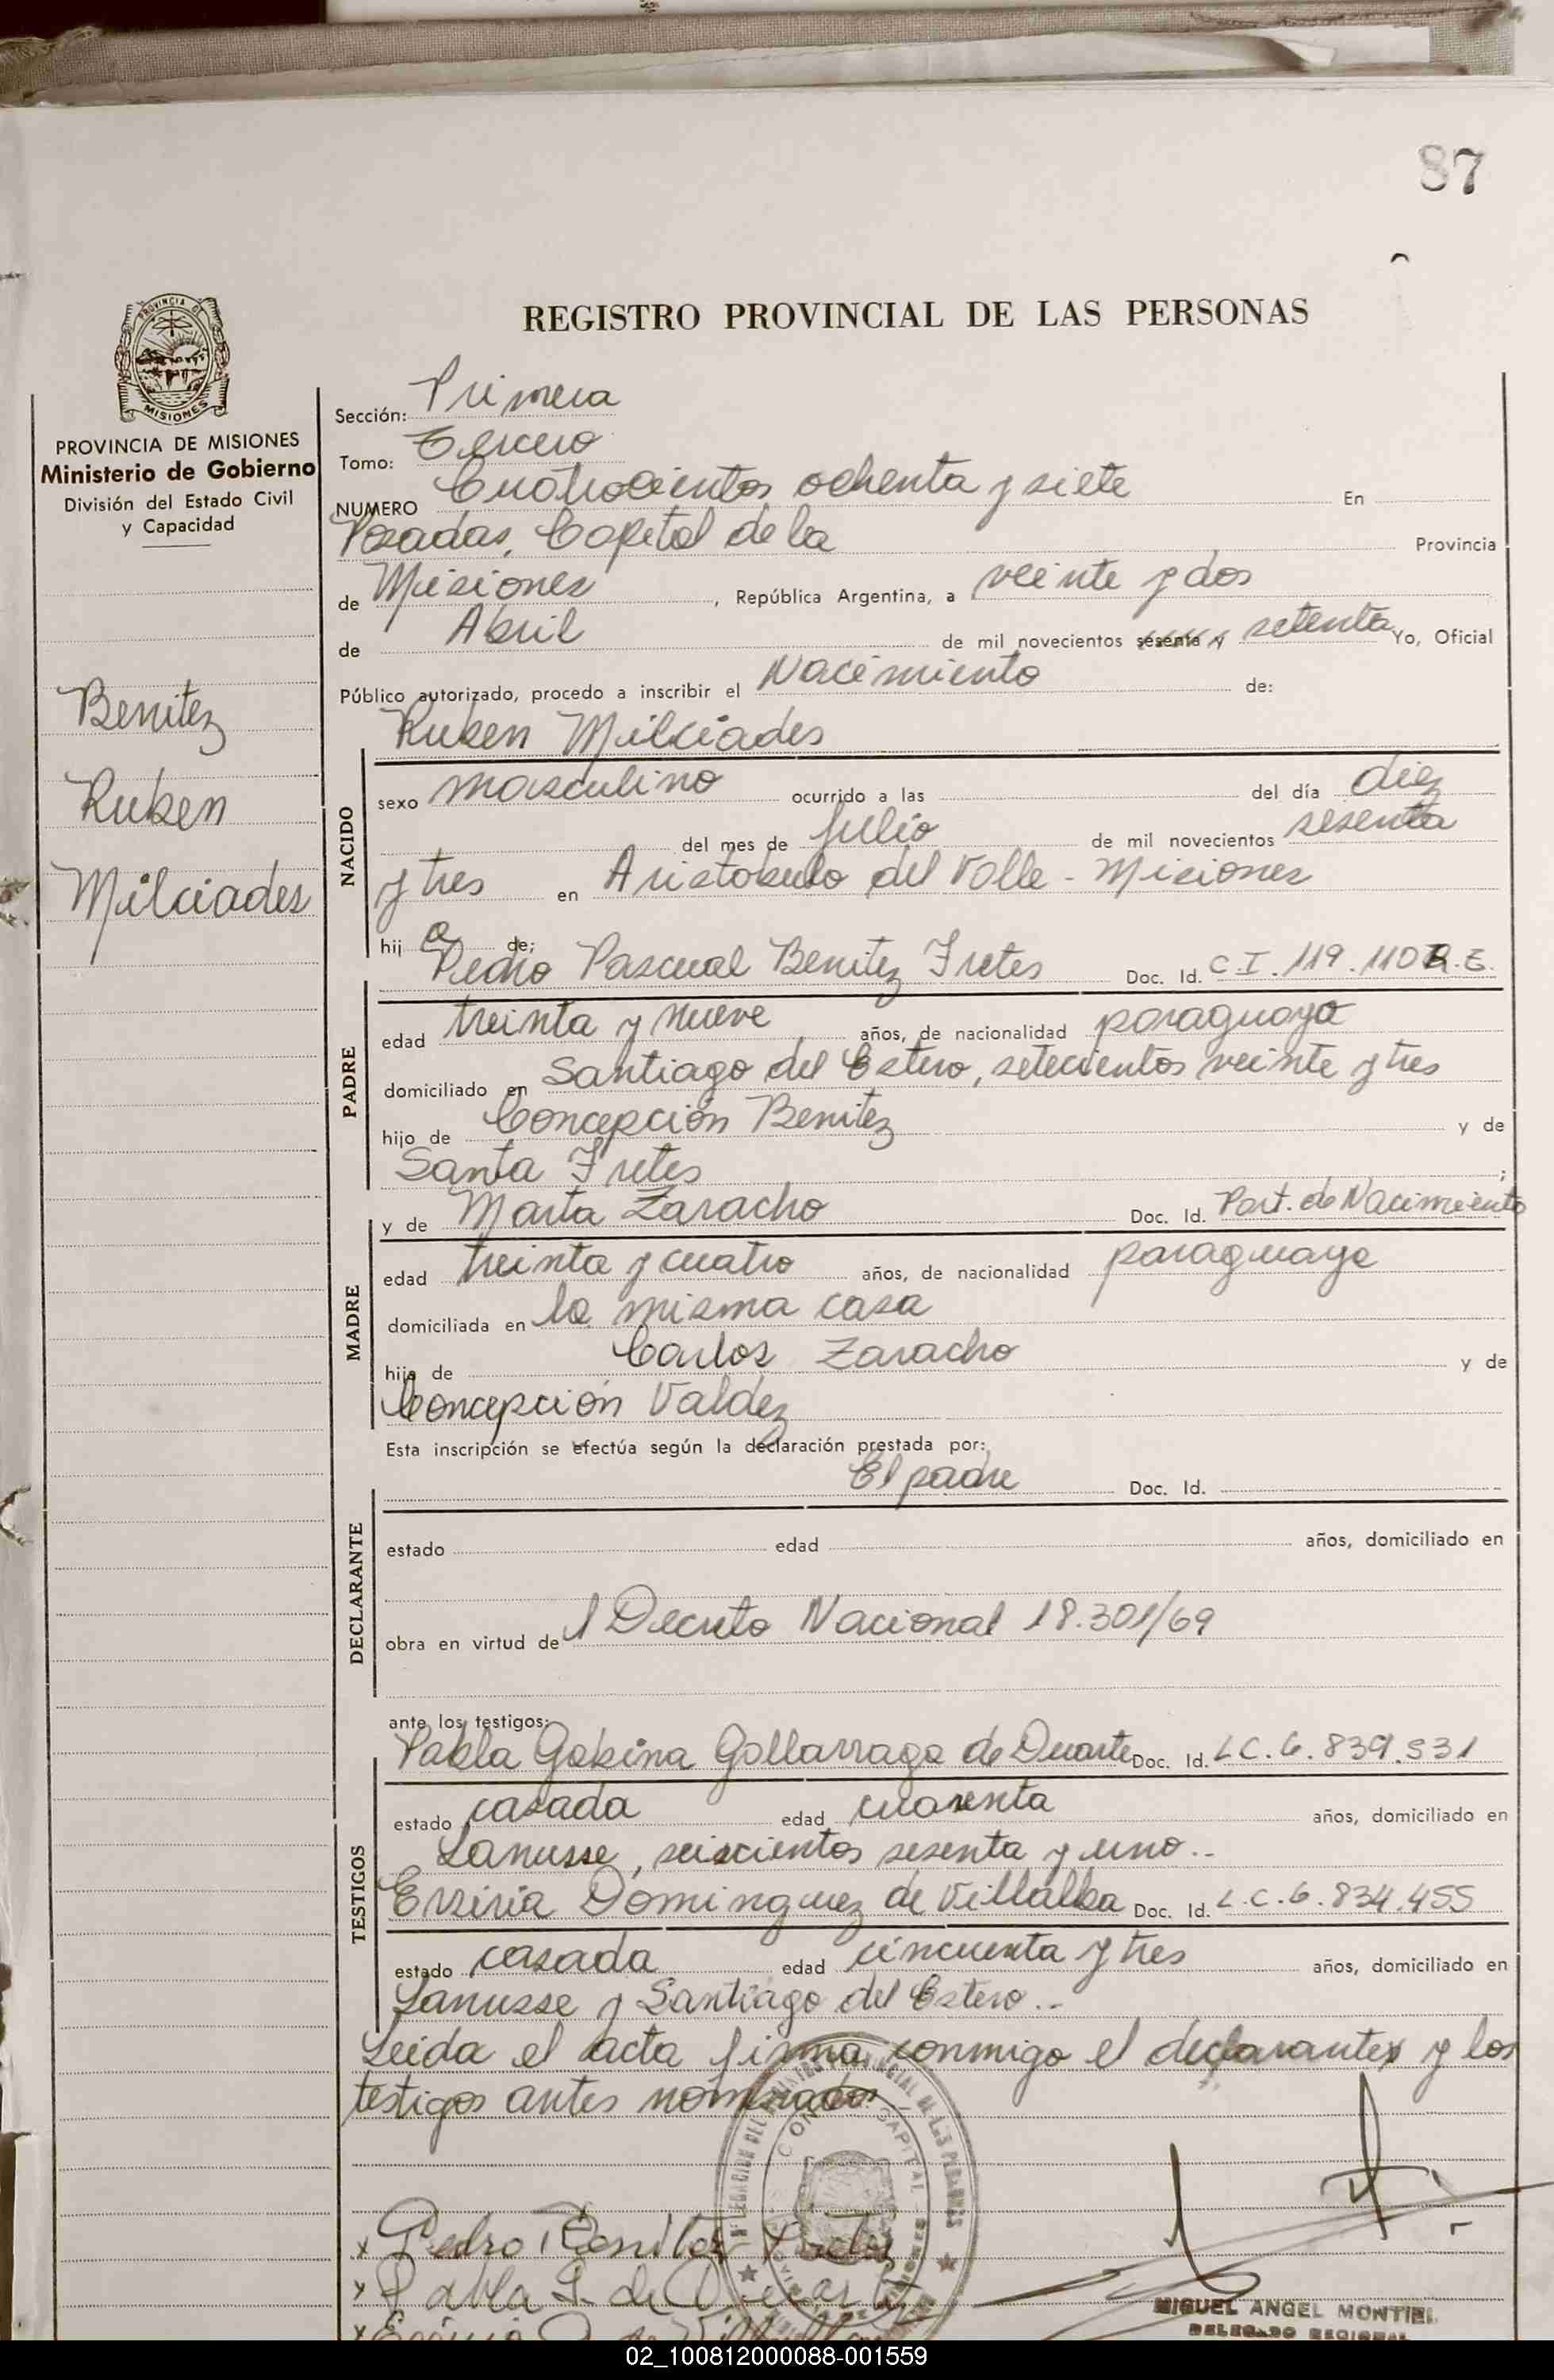 87
REGISTRO PROVINCIAL DE LAS PERSONAS
PROVINCIA DE MISIONES
PROVINCIA DE MISIONES
Ministerio de Gobierno
División del Estado Civil
y Capacidad
Benitez
Ruben
Milciades
Sección: Primera
Tomo: Tercero
NUMERO Cuatrocientos ochenta y siete En
Posadas, Capital de la Provincia
de Misiones, República Argentina, a veinte y dos
de Abril de mil novecientos sesenta y setenta Yo, Oficial
Público autorizado, procedo a inscribir el Nacimiento de:
Ruben Milciades
NACIDO
sexo masculino ocurrido a las del día diez
del mes de Julio de mil novecientos sesenta
y tres en Aristobulo del Valle - Misiones
hijo de:
Pedro Pascual Benitez Fretes Doc. Id. C.I. 119.110 R.E.
PADRE
edad treinta y nueve años, de nacionalidad paraguaya
domiciliado en Santiago del Estero, setecientos veinte y tres
hijo de Concepción Benitez y de
Santa Fretes ;
y de Marta Zaracho Doc. Id. Part. de Nacimiento
MADRE
edad treinta y cuatro años, de nacionalidad paraguaya
domiciliada en la misma casa
hija de Carlos Zaracho y de
Concepción Valdez
Esta inscripción se efectúa según la declaración prestada por:
El padre Doc. Id.
DECLARANTE
estado edad años, domiciliado en
obra en virtud del Decreto Nacional 18.301/69
ante los testigos:
Pabla Gabina Gollarraga de Duarte Doc. Id. L.C. 6.839.531
TESTIGOS
estado casada edad cuarenta años, domiciliado en
Lanusse, seiscientos sesenta y uno..
Ersiria Dominguez de Villalba Doc. Id. L.C. 6.834.455
estado casada edad cincuenta y tres años, domiciliado en
Lanusse y Santiago del Estero..
Leida el acta firma conmigo el declarante y los
testigos antes nombrados
x Pedro Benitez Fretes
x Pabla G. de Duarte
MIGUEL ANGEL MONTIEL
DELEGADO REGIONAL
02_100812000088-001559